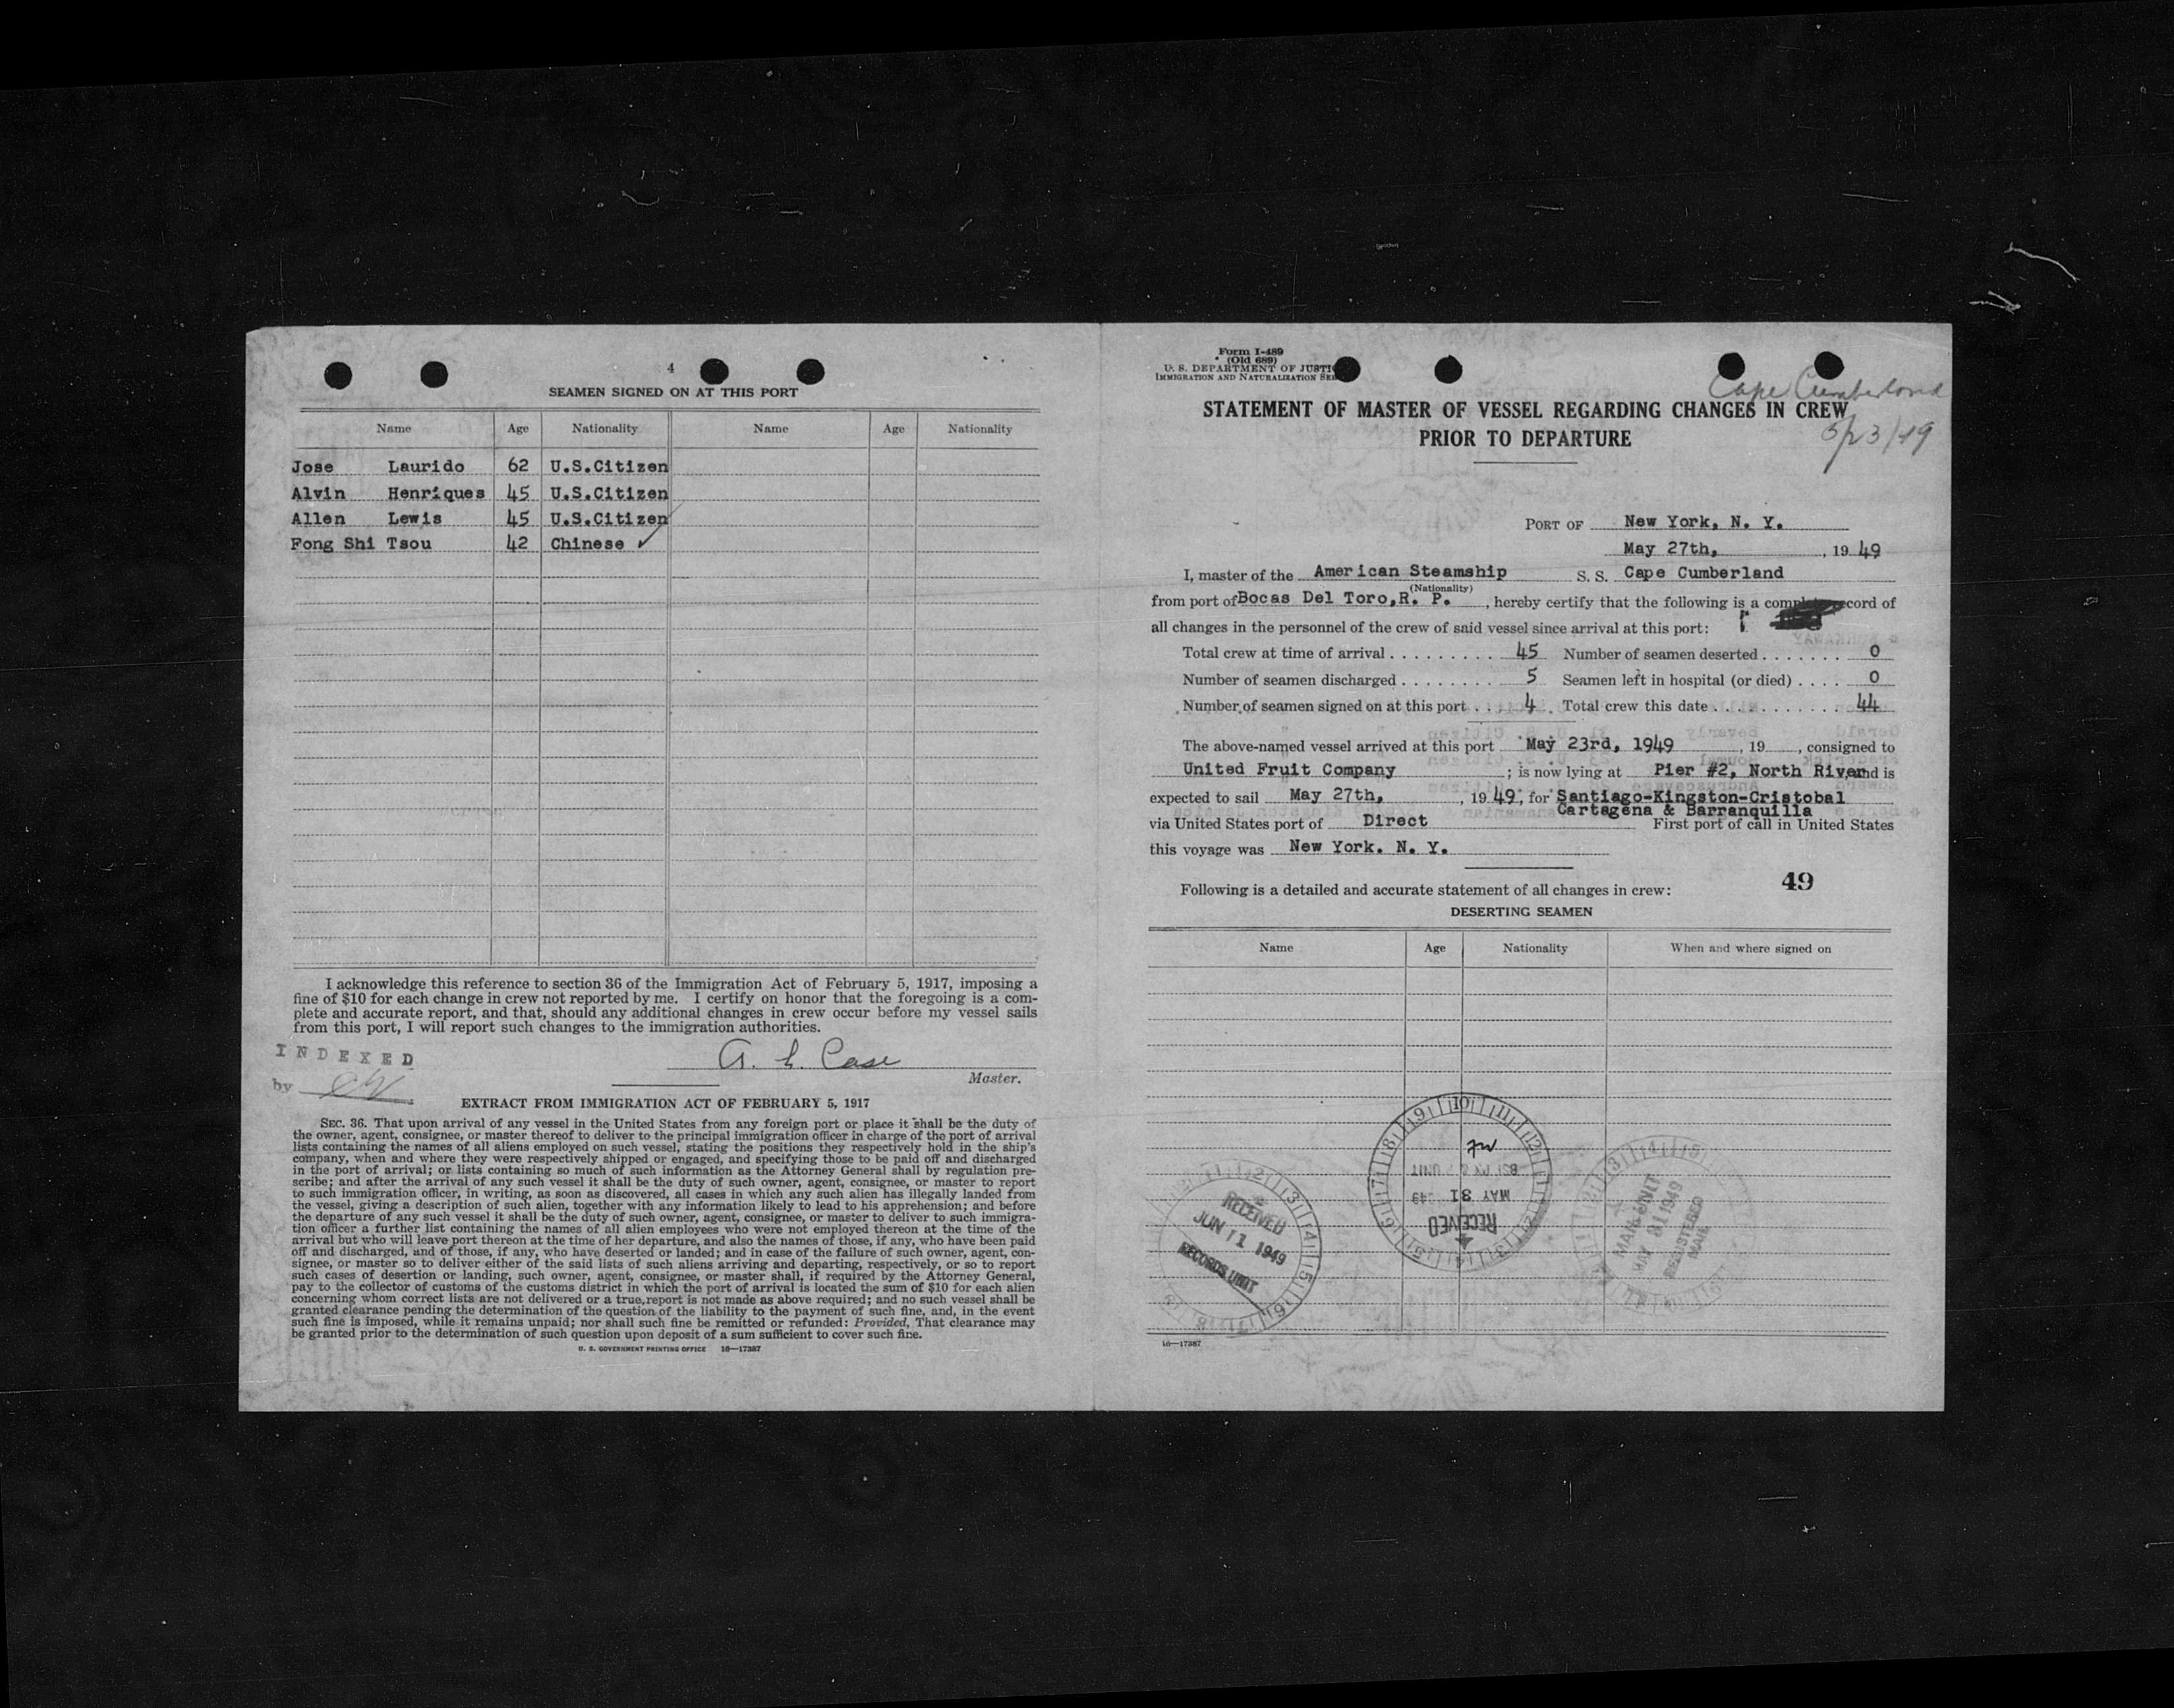 4
SEAMEN SIGNED ON AT THIS PORT
Name Age Nationality Name Age Nationality
Jose Laurido 62 U.S.Citizen
Alvin Henriques 45 U.S.Citizen
Allen Lewis 45 U.S.Citizen
Fong Shi Tsou 42 Chinese ✓
I acknowledge this reference to section 36 of the Immigration Act of February 5, 1917, imposing a
fine of $10 for each change in crew not reported by me. I certify on honor that the foregoing is a com-
plete and accurate report, and that, should any additional changes in crew occur before my vessel sails
from this port, I will report such changes to the immigration authorities.
INDEXED
by
Case
Master.
EXTRACT FROM IMMIGRATION ACT OF FEBRUARY 5, 1917
SEC. 36. That upon arrival of any vessel in the United States from any foreign port or place it shall be the duty of
the owner, agent, consignee, or master thereof to deliver to the principal immigration officer in charge of the port of arrival
lists containing the names of all aliens employed on such vessel, stating the positions they respectively hold in the ship's
company, when and where they were respectively shipped or engaged, and specifying those to be paid off and discharged
in the port of arrival; or lists containing so much of such information as the Attorney General shall by regulation pre-
scribe; and after the arrival of any such vessel it shall be the duty of such owner, agent, consignee, or master to report
to such immigration officer, in writing, as soon as discovered, all cases in which any such alien has illegally landed from
the vessel, giving a description of such alien, together with any information likely to lead to his apprehension; and before
the departure of any such vessel it shall be the duty of such owner, agent, consignee, or master to deliver to such immigra-
tion officer a further list containing the names of all alien employees who were not employed thereon at the time of the
arrival but who will leave port thereon at the time of her departure, and also the names of those, if any, who have been paid
off and discharged, and of those, if any, who have deserted or landed; and in case of the failure of such owner, agent, con-
signee, or master so to deliver either of the said lists of such aliens arriving and departing, respectively, or so to report
such cases of desertion or landing, such owner, agent, consignee, or master shall, if required by the Attorney General,
pay to the collector of customs of the customs district in which the port of arrival is located the sum of $10 for each alien
concerning whom correct lists are not delivered or a true report is not made as above required; and no such vessel shall be
granted clearance pending the determination of the question of the liability to the payment of such fine, and, in the event
such fine is imposed, while it remains unpaid; nor shall such fine be remitted or refunded: Provided, That clearance may
be granted prior to the determination of such question upon deposit of a sum sufficient to cover such fine.
U. S. GOVERNMENT PRINTING OFFICE 16—17387
Form I-489
(Old 689)
U. S. DEPARTMENT OF JUSTI
IMMIGRATION AND NATURALIZATION SE
Cape Cumberland
STATEMENT OF MASTER OF VESSEL REGARDING CHANGES IN CREW
PRIOR TO DEPARTURE
5/23/49
PORT OF New York, N. Y.
May 27th, , 19 49
I, master of the American Steamship S. S. Cape Cumberland
(Nationality)
from port of Bocas Del Toro, R. P. , hereby certify that the following is a complete record of
all changes in the personnel of the crew of said vessel since arrival at this port:
Total crew at time of arrival . . . . . . . . . 45 Number of seamen deserted . . . . . . . 0
Number of seamen discharged . . . . . . . . 5 Seamen left in hospital (or died) . . . . 0
Number of seamen signed on at this port . . . 4 Total crew this date . . . . . . . . . . . 44
The above-named vessel arrived at this port May 23rd, 1949 , 19 , consigned to
United Fruit Company ; is now lying at Pier #2, North River and is
expected to sail May 27th, , 19 49, for Santiago-Kingston-Cristobal
Cartagena & Barranquilla
via United States port of Direct First port of call in United States
this voyage was New York. N. Y.
Following is a detailed and accurate statement of all changes in crew: 49
DESERTING SEAMEN
Name Age Nationality When and where signed on
RECEIVED
JUN 1 1949
RECORDS UNIT
RECEIVED
MAY 31 49
MAIL UNIT
MAY 31 1949
REGISTERED
MAIL
16—17387